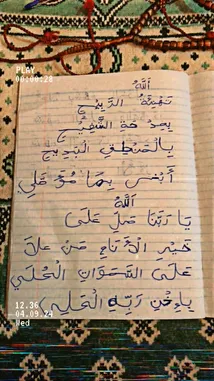 PLAY
00:00:28
الله
تهنئة الذبيح
بعد حة الشفيع
بالمنطق البديع
أبغى بها مؤ علي
الله
يا ربنا صل على
خير الأنام من علا
على السموات العلى
بإذن ربه العلي
12.36
04.09.24
Wed